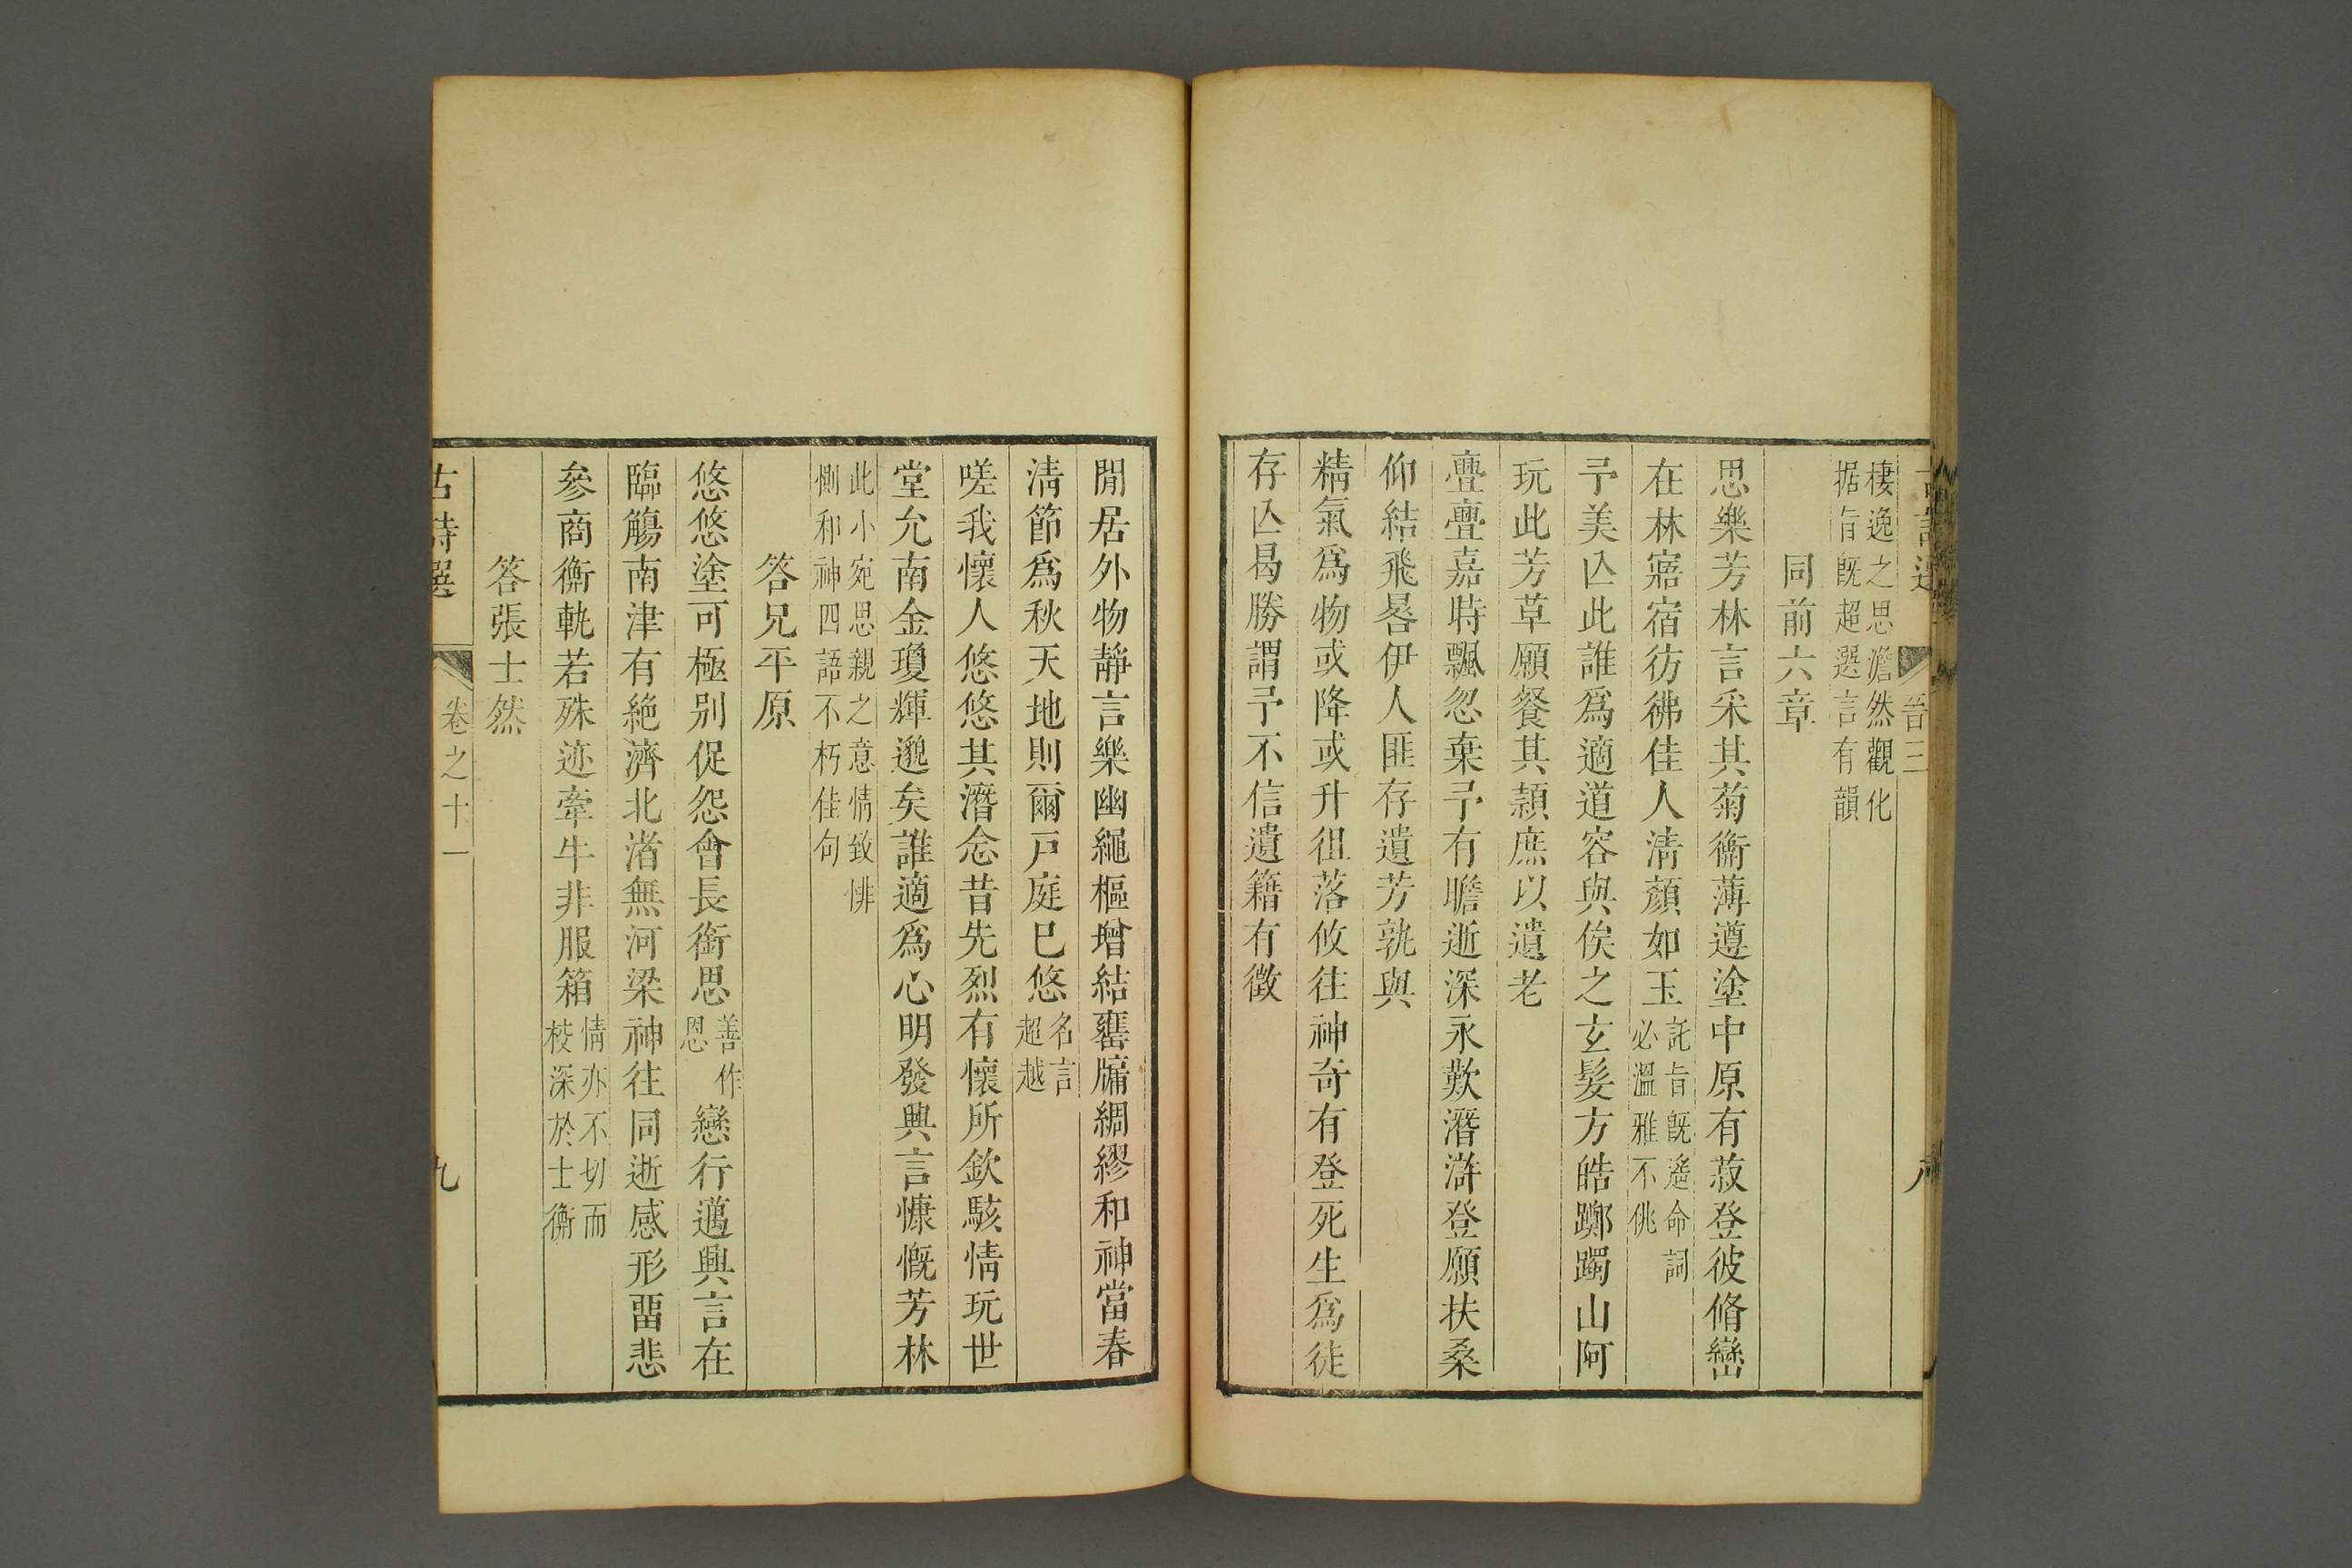 晉三
棲逸之思澹然觀化
据旨旣超選言有韻
同前六章
思樂芳林言采其菊衡薄遵塗中原有菽登彼脩巒
在林寤宿彷彿佳人淸顏如玉
託旨旣遙命詞
必溫雅不佻
予美亾此誰爲適道容與俟之玄髮方皓躑躅山阿
玩此芳草願餐其穎庶以遺老
亹亹嘉時飄忽棄予有瞻逝深永歎潛滸登願扶桑
仰結飛晷伊人匪存遺芳孰與
精氣爲物或降或升徂落攸往神奇有登死生爲徒
存亾曷勝謂予不信遺籍有徵
閒居外物靜言樂幽繩樞增結甕牖綢繆和神當春
淸節爲秋天地則爾戸庭已悠
名言
超越
嗟我懷人悠悠其潛念昔先烈有懷所欽駭情玩世
堂允南金瓊輝邈矣誰適爲心明發興言慷慨芳林
此小宛思親之意情致悱
惻和神四語不朽佳句
答兄平原
悠悠塗可極别促怨會長銜思
善作
恩
戀行邁興言在
臨觴南津有絶濟北渚無河梁神往同逝感形畱悲
參商衡軌若殊迹牽牛非服箱
情亦不切而
校深於士衡
答張士然
古詩選
卷之十一
九